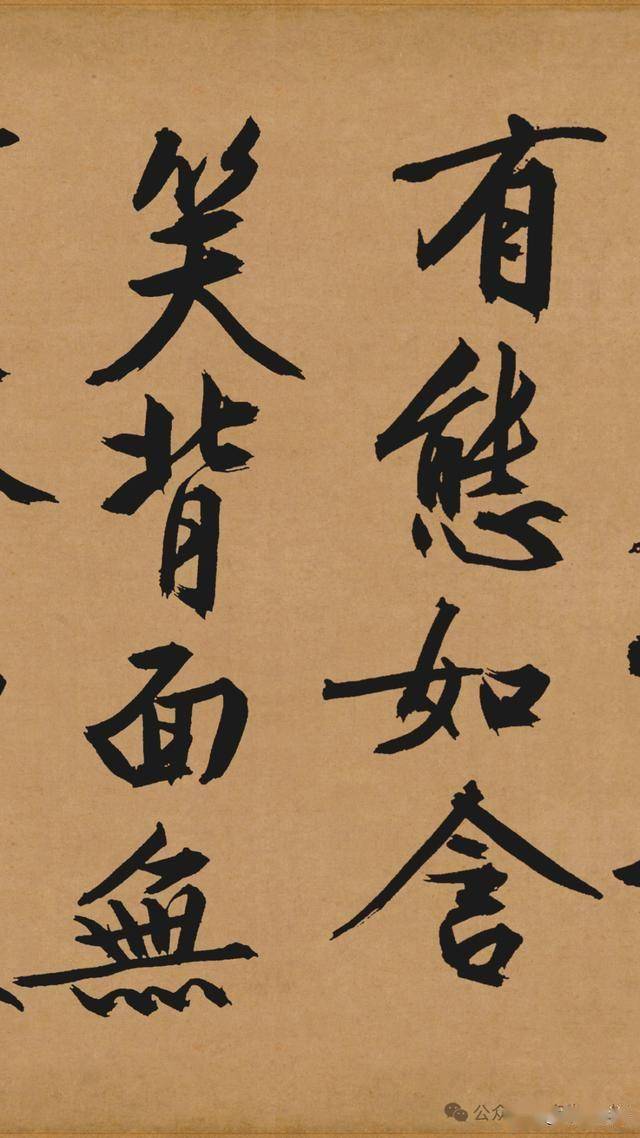 有態如含
笑背面無
公众